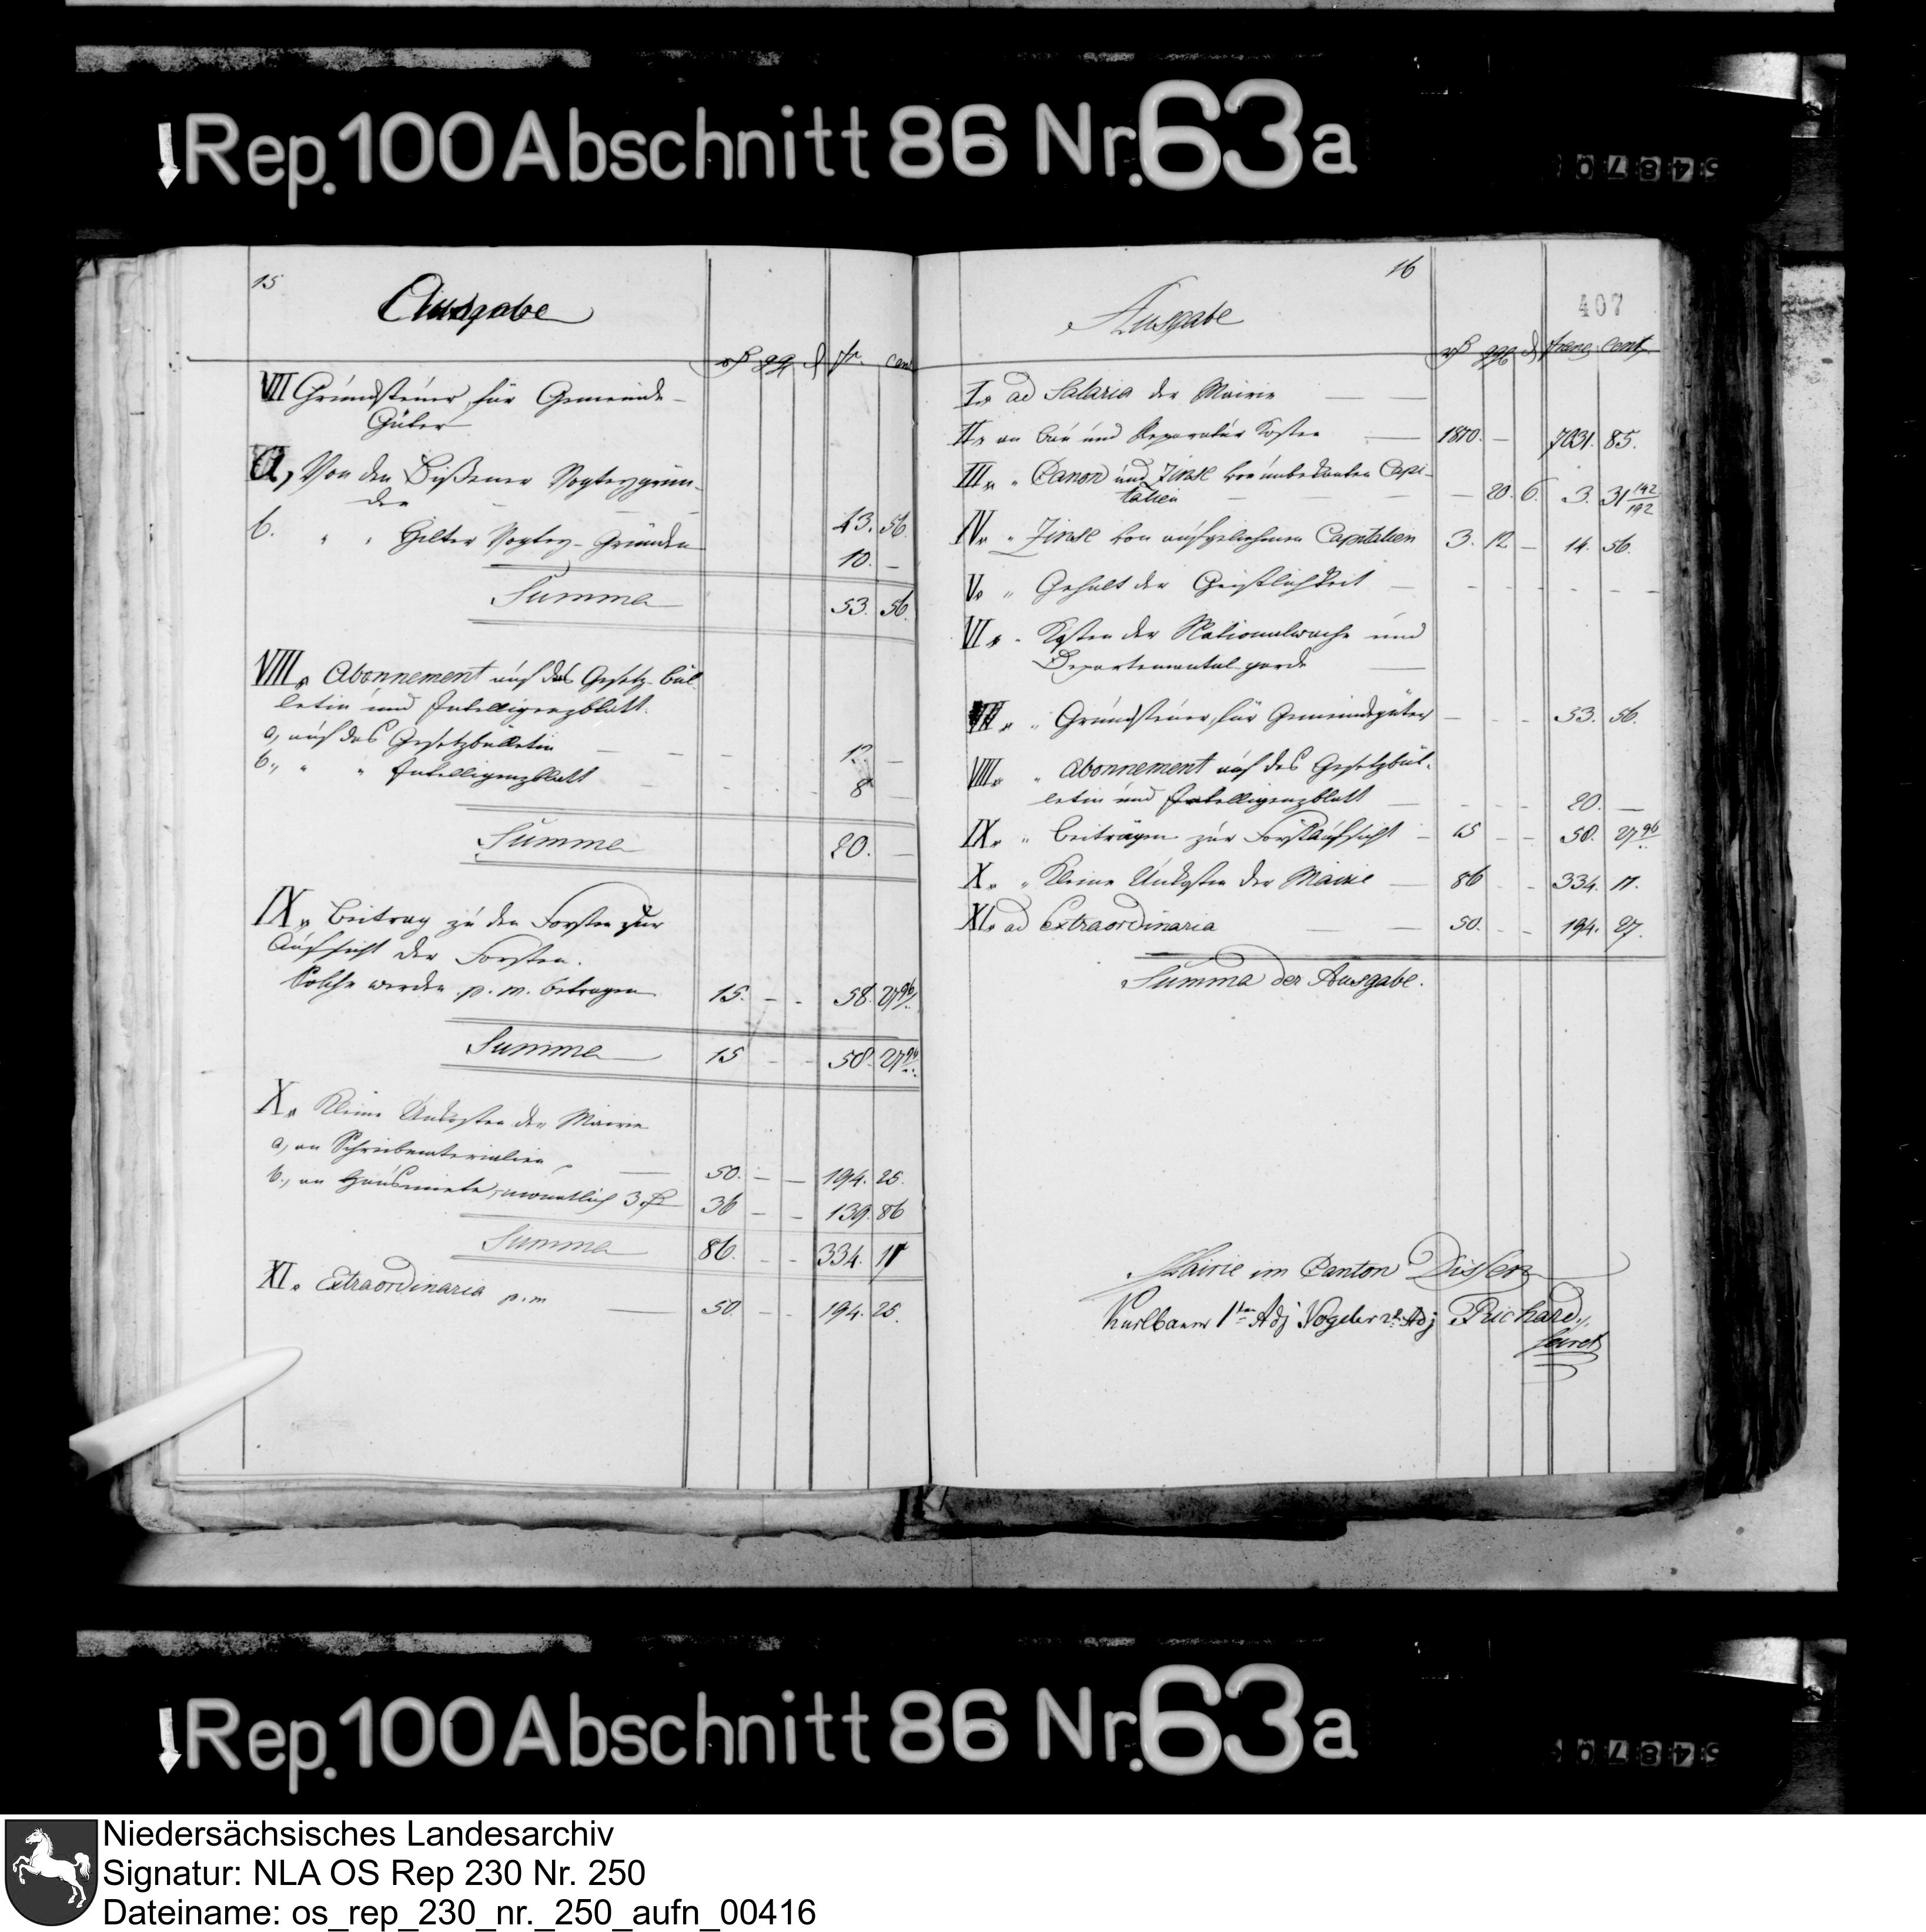 Rep. 100 Abschnitt 86 Nr. 63a
15
Ausgabe
rß ggr d fr. cent
VII Grundsteuer für Gemeinde-
Güter
a, Von den Dißener Vogteygrün-
den - - - 43. 56.
b. " " Hilter Vogtey-Gründen 10. -
Summa 53. 56.
VIII, Abonnement auf das Gesetz-bül-
letin und Intelligenzblatt.
a, auf das Gesetzbülletin - - - 12. -
b., " " Intelligenzblatt - - - 8 -
Summa 20. -
IX, Beitrag zu den Forsten zur
Aufsicht der Forsten.
Solche werden p. m. betragen 15. - - 58. 27
Summa 15 - - 58. 27
X, Kleine Unkosten der Mairie
a, an Schreibmaterialien - 50. - - 194. 25.
b., an Hausmiete, monatlich 3 rß 36 - - 139. 86
Summa 86. - - 334. 11
XI. Extraordinaria p. m - 50 - - 194. 25.
16
407
Ausgabe
rß ggr d Franc Cent
I, ad Salaria der Mairie - -
II, an Bau und Reparatur Kosten - 1810. - 7031. 85.
III, " Canon und Zinse von unbekanten Capi-
talien - - - 20. 6. 3. 31 142/192
IV, " Zinse von aufgeliehenen Capitalien 3. 12 - 14. 56.
V. " Gehalt der Geistlichkeit - - - - - -
VI, " Kosten der Nationalwache und
Departemental-garde -
VII, " Grundsteuer für Gemeindegüter - - - 53. 56.
VIII, " Abonnement auf das Gesetzbül-
letin und Intelligenzblatt - - - - 20. -
IX, " Beiträgen zur Forstaufsicht - 15 - - 58. 27
X, " Kleine Unkosten der Mairie - 86 - - 334. 11.
XI, ad Extraordinaria - - 50. - - 194. 27.
Summa der Ausgabe.
Mairie im Canton Dissen
1ter Adj Vogeler 2r Adj Richard,
Secret
Rep. 100 Abschnitt 86 Nr. 63a
Niedersächsisches Landesarchiv
Signatur: NLA OS Rep 230 Nr. 250
Dateiname: os_rep_230_nr._250_aufn_00416